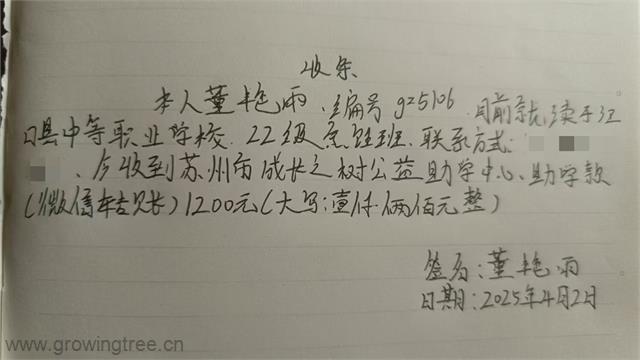 收条
本人董艳雨、编号gz5106 目前就读于江
口县中等职业学校 22级 班. 联系方式:
、今收到苏州市成长之树公益助学中心、助学款
(微信转账)1200元(大写:壹仟俩佰元整)
签名:董艳雨
日期:2025年4月2日
www.growingtree.cn